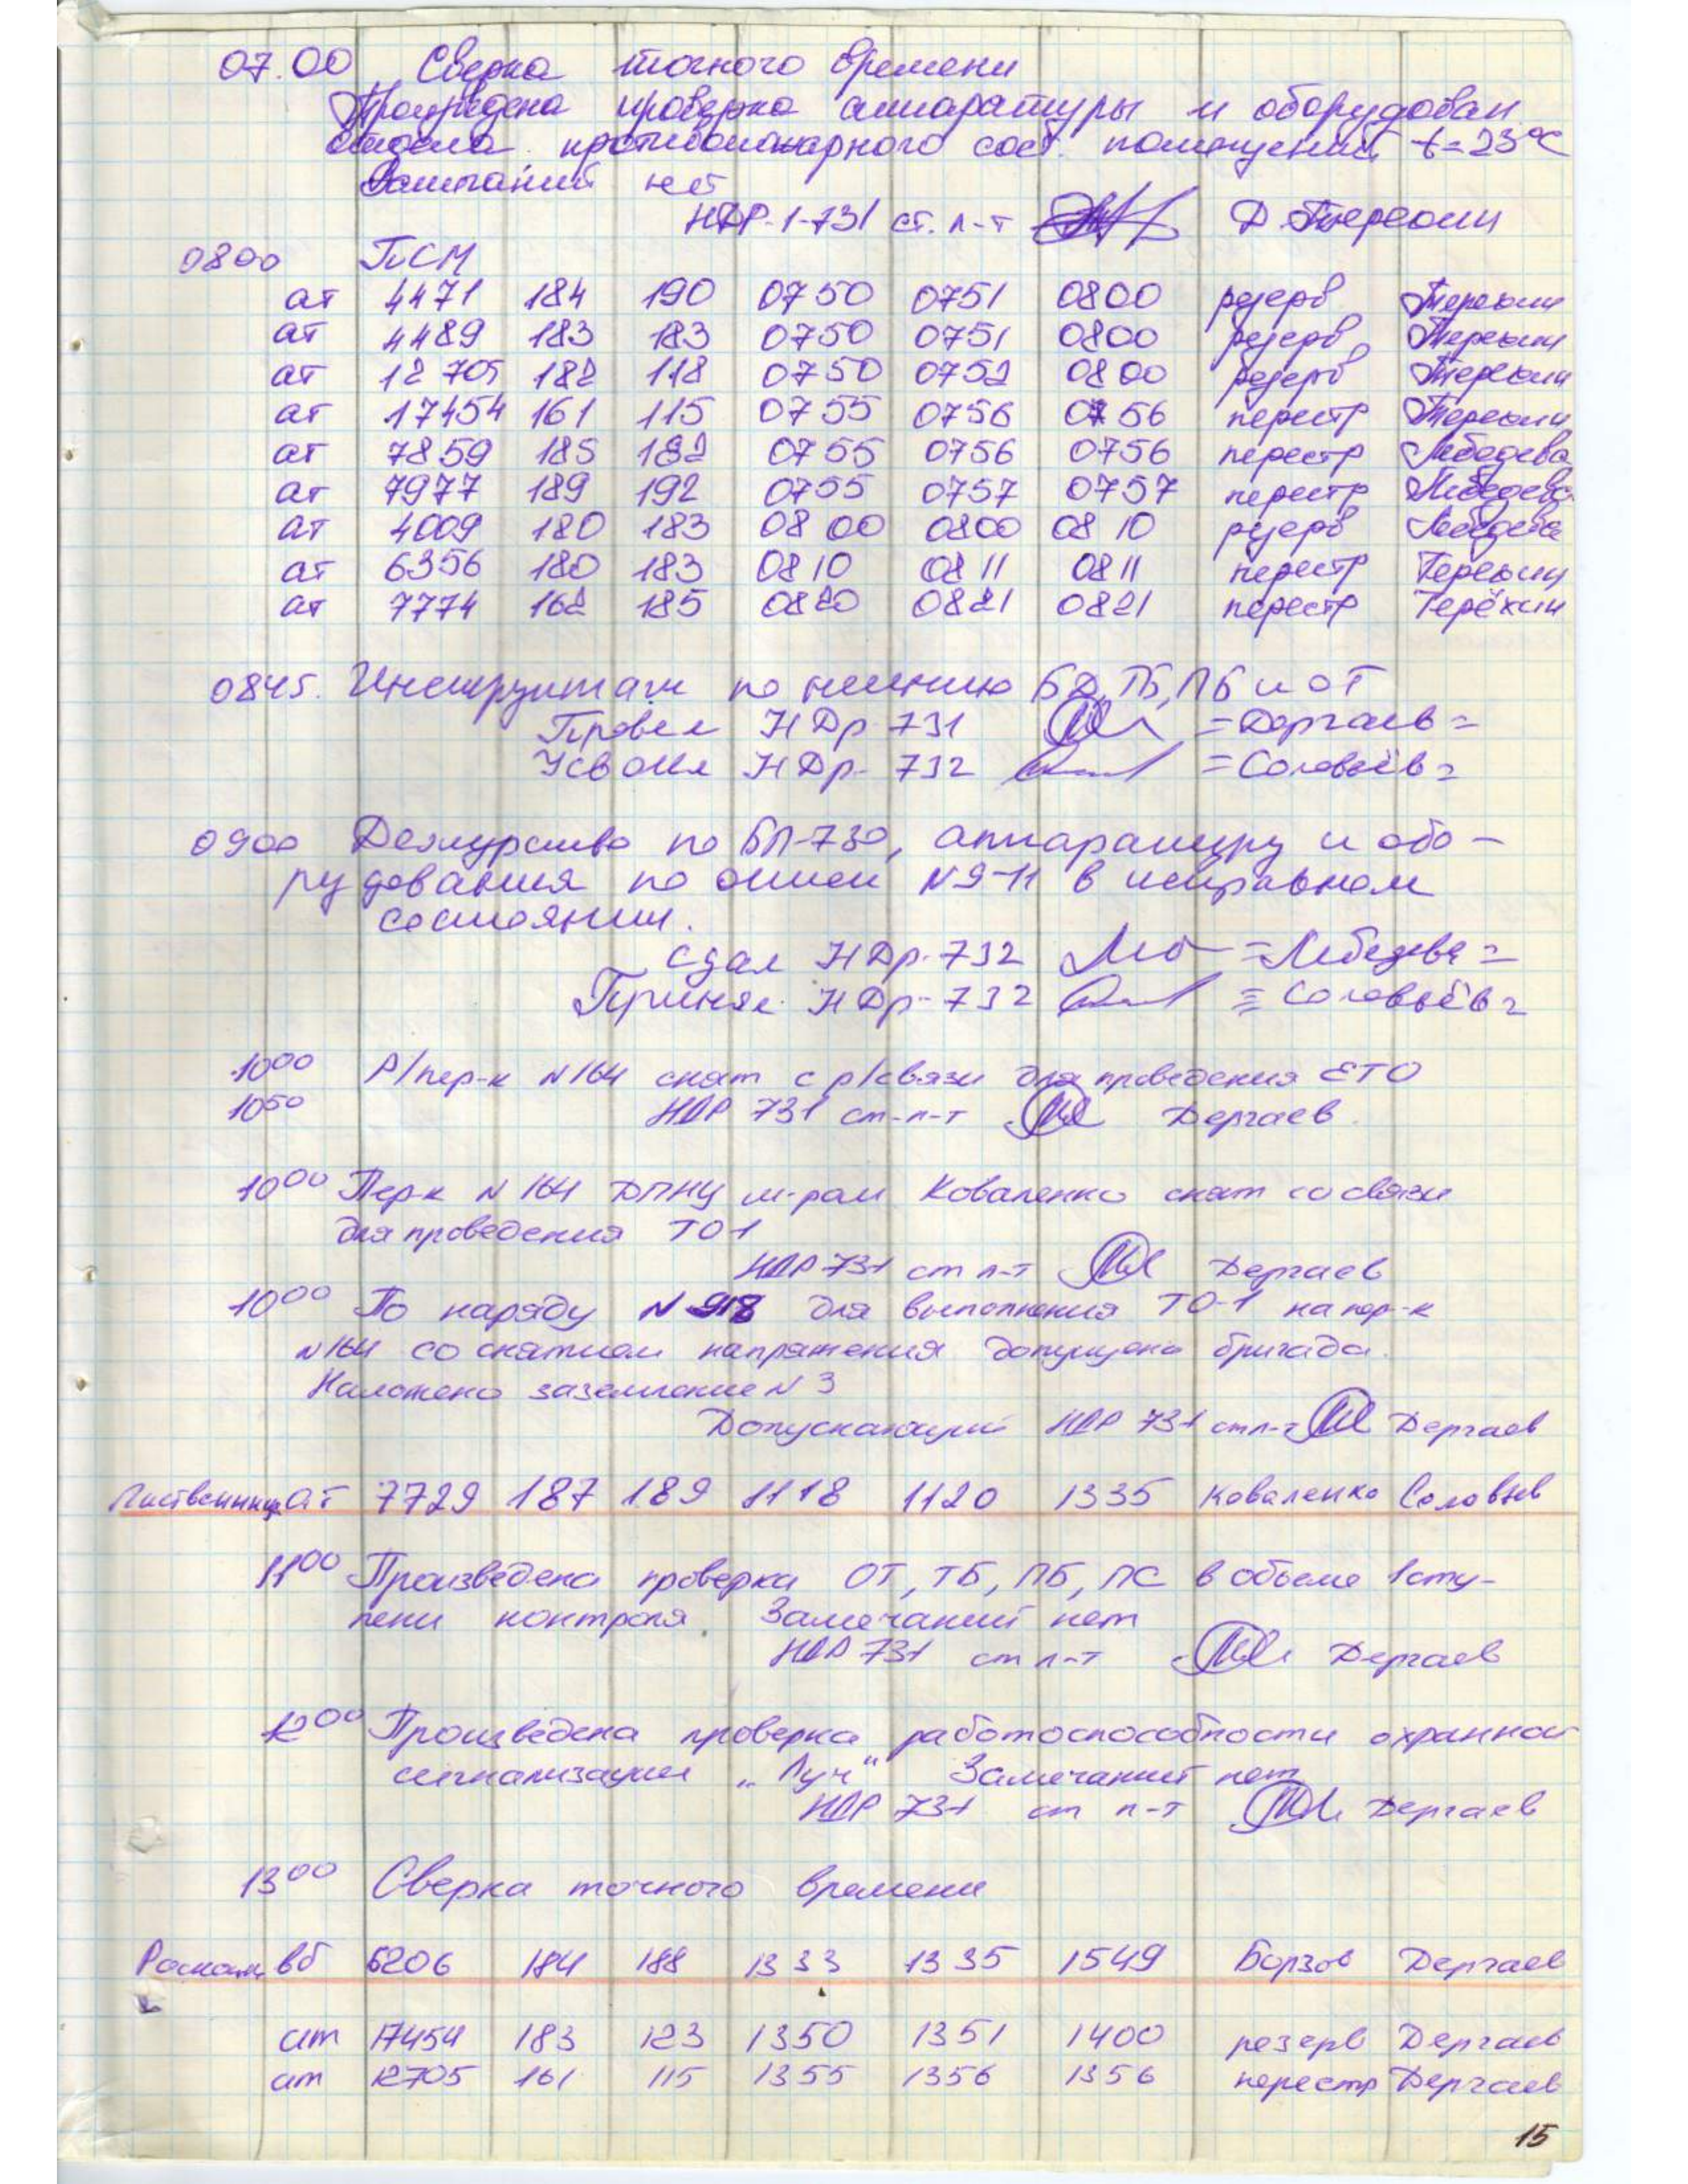 07.00 Сверка точного времени
Произведена проверка аппаратуры и оборудован
отдела противопожарного сост. помещений t=23°С
Замечаний нет
НДР-1-731 ст. л-т Д. Терехин
0800 ПСМ
ат 4471 184 190 0750 0751 0800 резерв Терехин
ат 4489 183 183 0750 0751 0800 резерв Терехин
ат 12705 182 118 0750 0752 0800 резерв Терехин
ат 17454 161 115 0755 0756 0756 перестр Терехин
ат 7859 185 182 0755 0756 0756 перестр Лебедева
ат 7977 189 192 0755 0757 0757 перестр Лебедева
ат 4009 180 183 0800 0800 0810 резерв Лебедева
ат 6356 180 183 0810 0811 0811 перестр Терехин
ат 7774 162 185 0820 0821 0821 перестр Терёхин
0845. Инструктаж по несению БД, ТБ, ПБ и ОТ
Провел НДр 731 =Дергаев=
Усвоил НДр-732 =Соловьёв=
0900 Дежурство по БП-730, аппаратуру и обо-
рудования по описи N9-11 в исправном
состоянии.
Сдал НДр-732 =Лебедева=
Принял НДр-732 =Соловьёв=
1000 Р/пер-к N164 снят с р/связи для проведения ЕТО
1050 НДР 731 ст-л-т Дергаев
1000 Пер-к N 164 ДПНУ м-ром Коваленко снят со связи
для проведения ТО1
НДР 731 ст л-т Дергаев
1000 По наряду N 918 для выполнения ТО-1 на пер-к
N164 со снятием напряжения допущена бригада.
Наложено заземление N 3
Допускающий НДР 731 ст л-т Дергаев
Лиственница ат 7729 187 189 1118 1120 1335 Коваленко Соловьев
1100 Произведена проверка ОТ, ТБ, ПБ, ПС в объеме 1 сту-
пени контроля. Замечаний нет
НДР 731 ст л-т Дергаев
1200 Произведена проверка работоспособности охранной
сигнализации „Луч" Замечаний нет
НДР 731 ст л-т Дергаев
1300 Сверка точного времени
вб 6206 184 188 1333 1335 1549 Борзов Дергаев
ат 17454 183 123 1350 1351 1400 резерв Дергаев
ат 12705 161 115 1355 1356 1356 перестр Дергаев
15